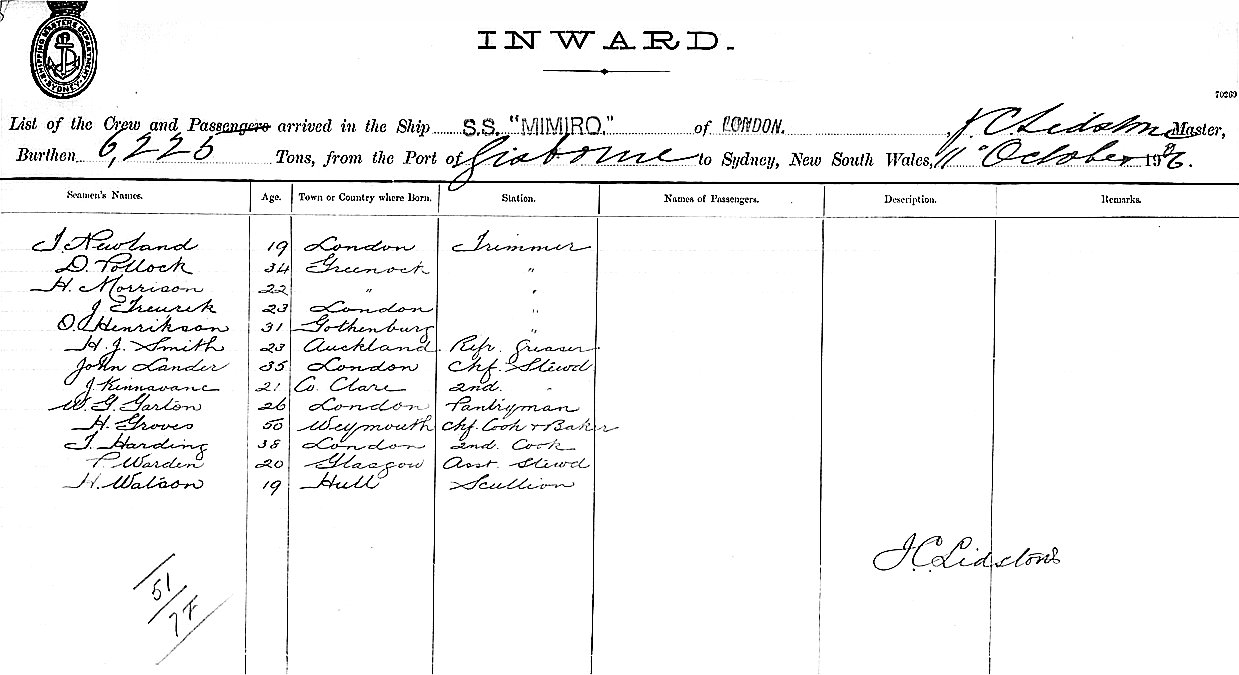 SHIPPING MASTERS DEPARTMENT SYDNEY
INWARD.
70269
List of the Crew and Passengers arrived in the Ship S.S. "MIMIRO." of LONDON. J. C. Lidstone Master,
Burthen 6,225 Tons, from the Port of Gisborne to Sydney, New South Wales, 11th October 1906.
Seamen's Names. Age. Town or Country where Born. Station. Names of Passengers. Description. Remarks.
J. Newland 19 London Trimmer
D. Pollock 34 Greenock "
H. Morrison 22 " "
J. 23 London "
O. Henrikson 31 Gothenburg "
H. J. Smith 23 Auckland Refr. Greaser
John Lander 35 London Chf. Stewd
J. Kinnavane 21 Co. Clare 2nd. "
W. G. Garton 26 London Pantryman
H. Groves 50 Weymouth Chf. Cook & Baker
T. Harding 38 London 2nd. Cook
P. Warden 20 Glasgow Asst. Stewd
H. Watson 19 Hull Scullion
J. C. Lidstone
51
7F